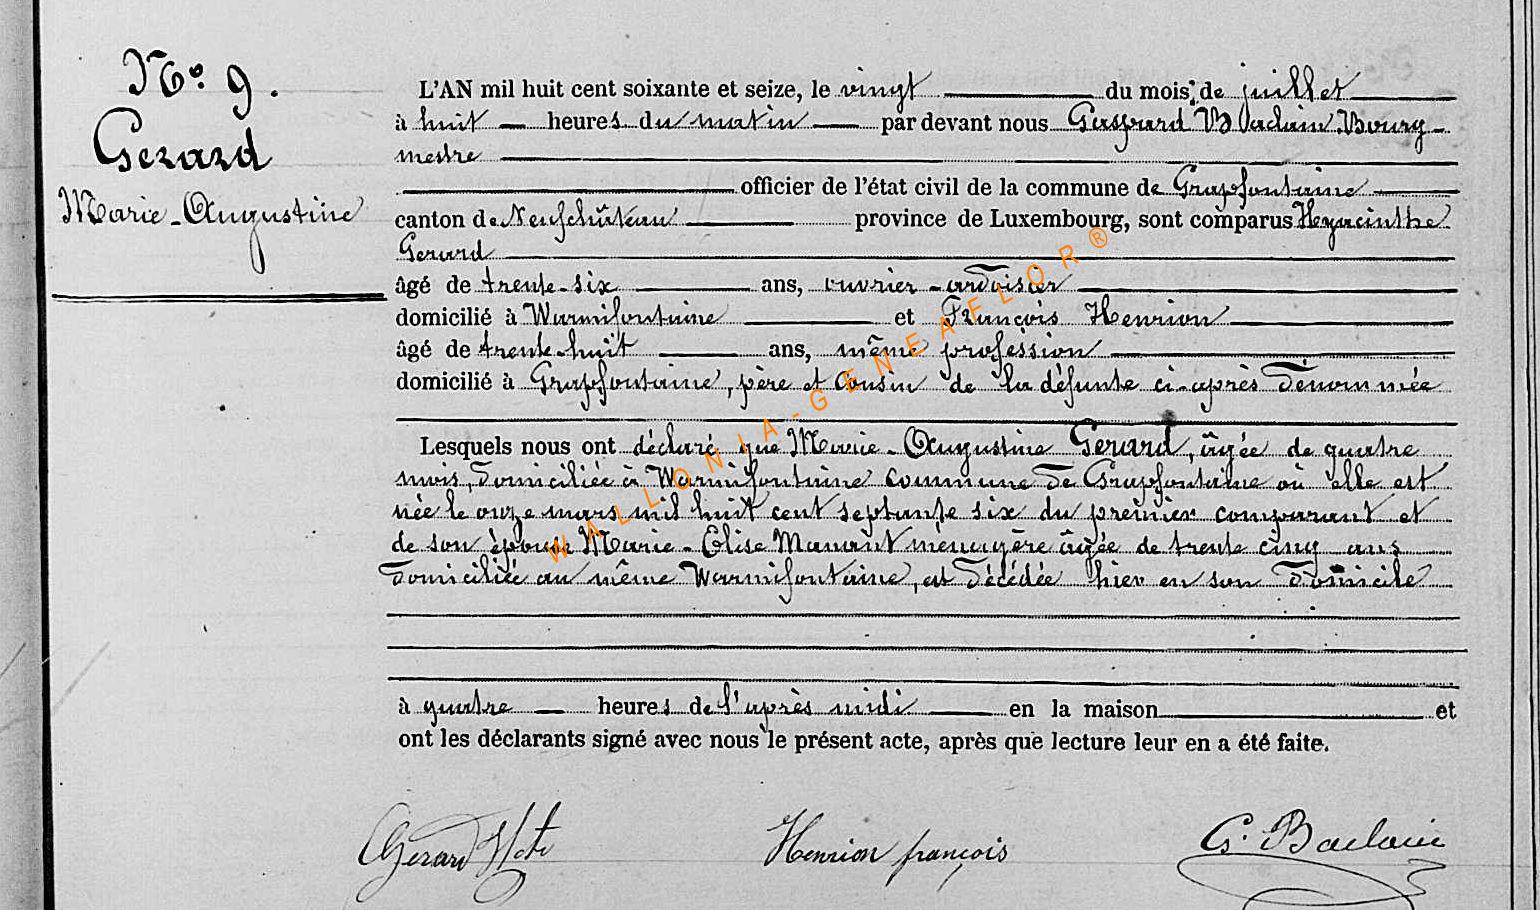 No. 9.
Gerard
Marie-Augustine
L'AN mil huit cent soixante et seize, le vingt du mois de juillet
à huit heures du matin par devant nous Gaspard Baclain Bourg-
mestre
officier de l'état civil de la commune de Grapfontaine
canton de Neufchâteau province de Luxembourg, sont comparus Hyacinthe
Gerard
âgé de trente-six ans, ouvrier-ardoisier
domicilié à Warmifontaine et François Henrion
âgé de trente-huit ans, même profession
domicilié à Grapfontaine, père et cousin de la défunte ci-après dénommée
Lesquels nous ont déclaré que Marie-Augustine Gerard, âgée de quatre
mois, domiciliée à Warmifontaine commune de Grapfontaine où elle est
née le onze mars mil huit cent septante six du premier comparant et
de son épouse Marie-Elise Manant ménagère âgée de trente cinq ans
domiciliée au même Warmifontaine, est décédée hier en son domicile
à quatre heures de l'après midi en la maison et
ont les déclarants signé avec nous le présent acte, après que lecture leur en a été faite.
Gerard Hte Henrion françois G. Baclain
WALLONIA-GENEAFLOR®